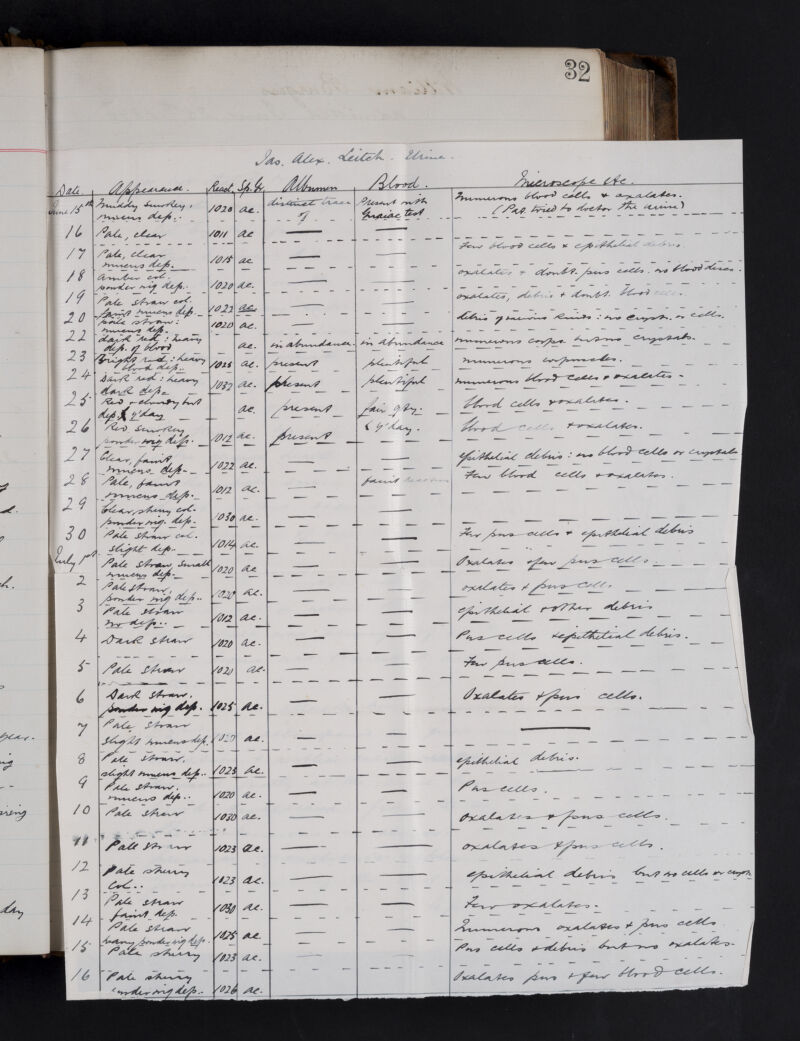 32
Jas. Alex. Leitch. Urine.
Date. Appearance. React. Sp. Gr. Albumen Blood. Microscope &c.
June 15th Muddy smokey, 1020 ac. distinct trace Present with Numerous blood cells & oxalates.
mucus dep.: of Guaiac test (Pat. tried to doctor the urine)
16 Pale, clear 1011 ac — —
17 Pale, clear 1015 ac — — Few blood cells & epithelial debris.
mucus dep.
18 Amber col. 1020 ac. — — oxalates & doubt. pus cells. no blood
powder wig dep.
19 Pale straw col. 1022 — — oxalates, debris & doubt. blood cells
faint mucus dep.
20 pale straw: 1020 ac. — — debris of various kinds: no cryst. or cells.
mucus dep.
22 dark red: heavy ac. in abundance. in abundance numerous corps but no crystals.
dep. of blood
23 Bright red: heavy 1025 ac. present plentiful numerous corpuscles.
blood dep.
24 Dark red: heavy ac. present plentiful numerous blood cells & oxalates.
dark dep.
25 Red & cloudy but ac. present fair qty. blood cells & oxalates.
dep.
26 Red, smokey 1012 ac. present blood cells & oxalates.
powder wig dep.
27 Clear, faint 1022 ac. — — epithelial debris: no blood cells or crystals
mucus dep.
28 Pale, faint 1012 ac. — faint Few blood cells & oxalates.
mucus dep.
29 Clear, sherry col. 1030 ac. — —
powder wig. dep.
30 Pale straw col. 1014 ac. — — Few pus cells & epithelial debris
slight dep.
July 1st Pale straw, small 1020 ac. — — Oxalates & few pus cells
mucus dep.
2 Pale straw, 1020 ac. — — oxalates & pus cells
powder wig dep.
3 Pale straw 1012 ac. — — epithelial & other debris
no dep.
4 Dark straw 1020 ac. — — Pus cells & epithelial debris.
5 Pale straw 1020 ac. — — Few pus cells.
6 Dark straw. 1025 ac. — — Oxalates & pus cells.
powder wig dep.
7 Pale straw 1020 ac. — — —
slight mucus dep.
8 Pale straw. 1025 ac. — — epithelial debris.
slight mucus dep.
9 Pale straw. 1020 ac. — — Pus cells.
mucus dep.
10 Pale straw 1030 ac. — — oxalates & pus cells.
11 Pale straw 1023 ac. — — oxalates & pus cells.
12 Pale sherry 1023 ac. — — epithelial debris but no cells or cryst.
col.
13 Pale straw 1030 ac. — — Few oxalates.
faint dep.
14 Pale straw 1025 ac. — — Numerous oxalates & pus cells
heavy powder wig dep.
15 Pale sherry 1023 ac. — — Pus cells & debris but no oxalates.
16 Pale sherry 1026 ac. — — Oxalates pus & few blood cells.
powder wig dep.